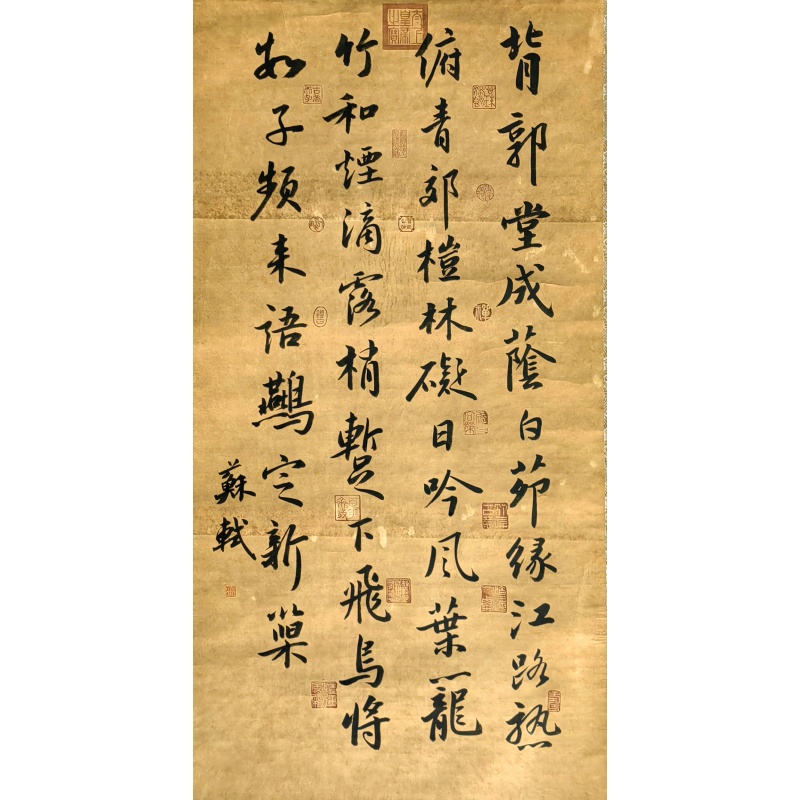 太上皇帝之寶
背郭堂成蔭白茆緣江路熟
俯青郊榿林礙日吟風葉籠
竹和煙滴露梢蹔下飛烏將
數子頻來語鷰定新巢
蘇軾